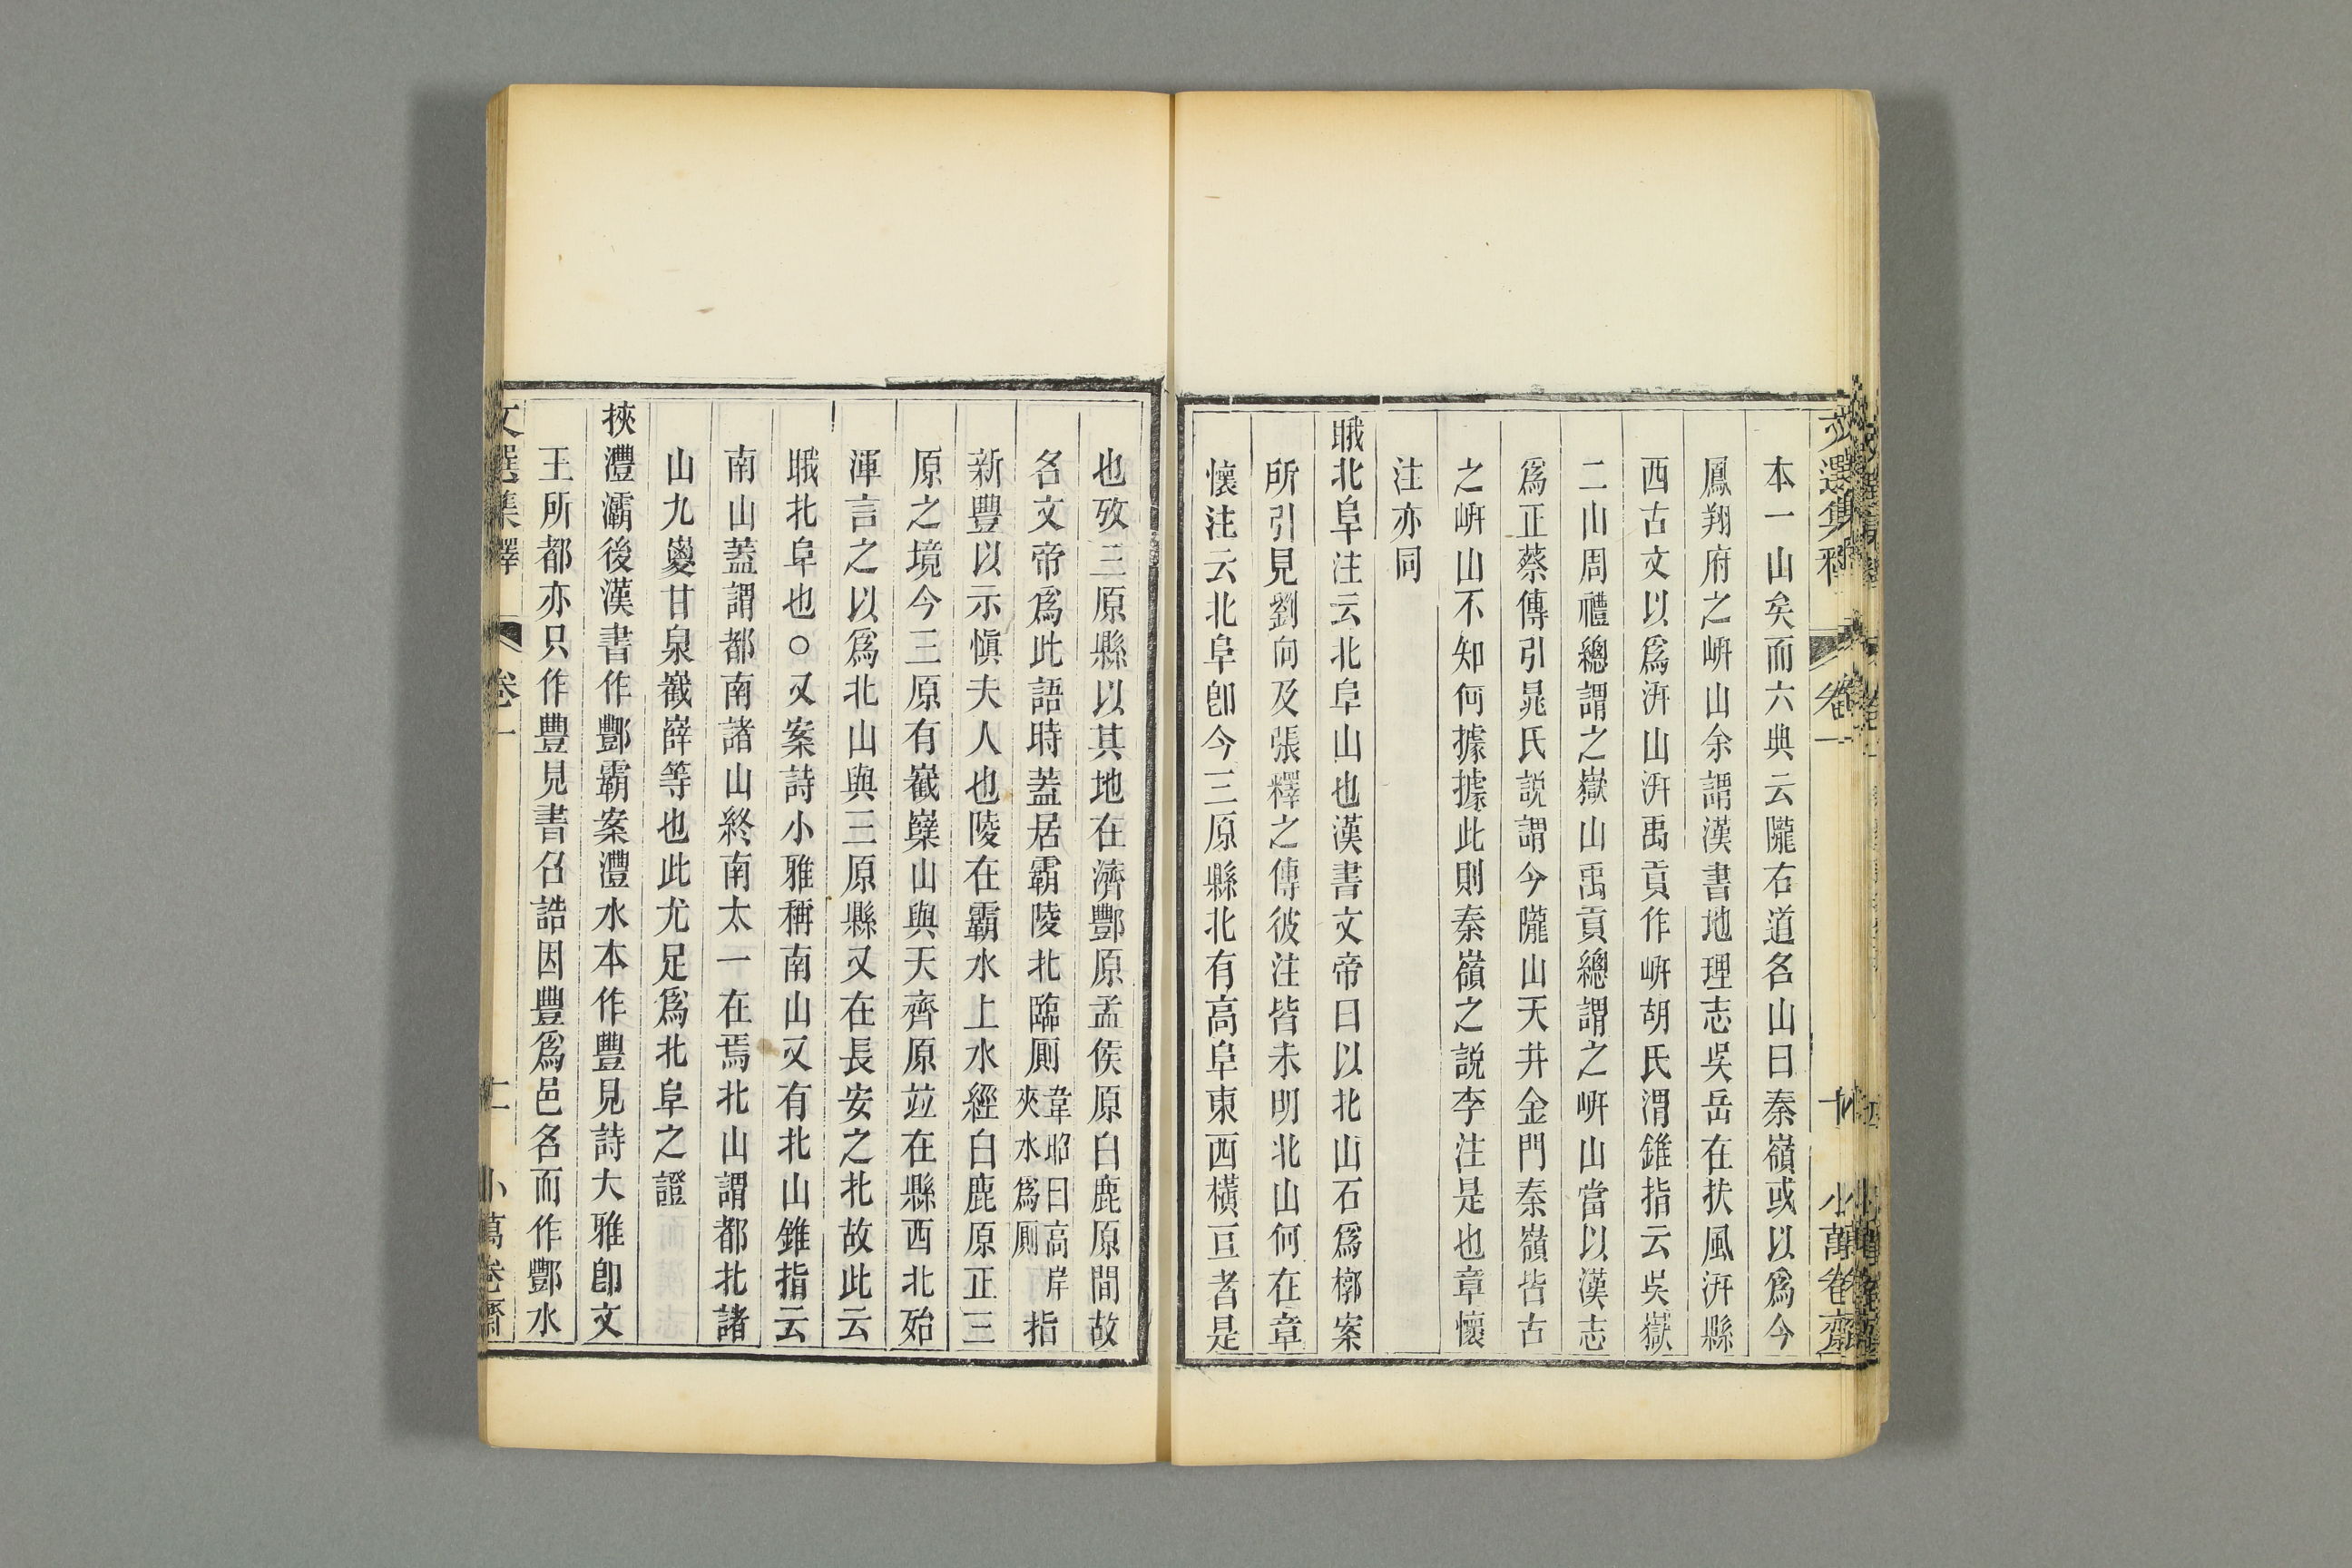 本一山矣而六典云隴右道名山曰秦嶺或以爲今
鳳翔府之岍山余謂漢書地理志吳岳在扶風汧縣
西古文以爲汧山汧禹貢作岍胡氏渭錐指云吳嶽
二山周禮總謂之嶽山禹貢總謂之岍山當以漢志
爲正蔡傳引晁氏説謂今隴山天井金門秦嶺皆古
之岍山不知何據據此則秦嶺之説李注是也章懷
注亦同
睋北阜注云北阜山也漢書文帝曰以北山石爲槨案
所引見劉向及張釋之傳彼注皆未明北山何在章
懷注云北阜卽今三原縣北有高阜東西橫亘者是
也攷三原縣以其地在濟酆原孟侯原白鹿原間故
名文帝爲此語時蓋居霸陵北臨厠韋昭曰高岸夾水爲厠指
新豐以示愼夫人也陵在霸水上水經白鹿原正三
原之境今三原有嶻嶪山與天齊原竝在縣西北殆
渾言之以爲北山與三原縣又在長安之北故此云
睋北阜也○又案詩小雅稱南山又有北山錐指云
南山蓋謂都南諸山終南太一在焉北山謂都北諸
山九嵏甘泉嶻嶭等也此尤足爲北阜之證
挾灃灞後漢書作酆霸案灃水本作豐見詩大雅卽文
王所都亦只作豐見書召誥因豐爲邑名而作酆水
文選集釋 卷一 十一 小萬卷齋